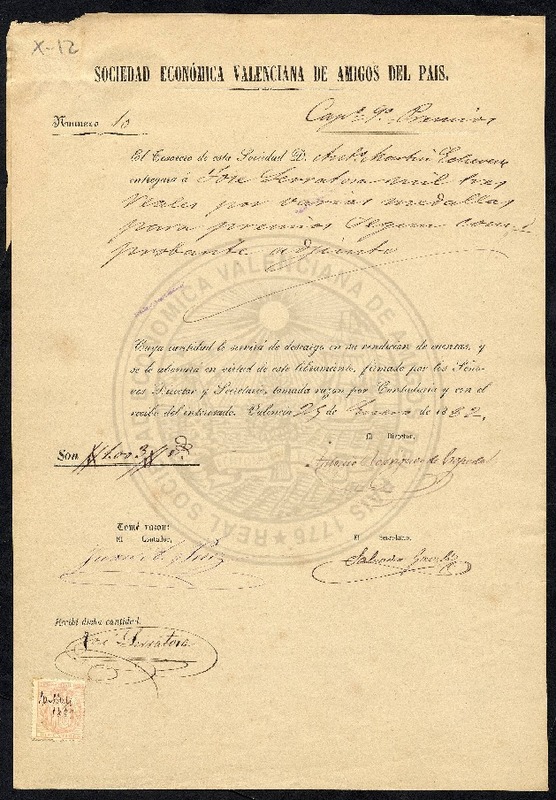 X-12
SOCIEDAD ECONÓMICA VALENCIANA DE AMIGOS DEL PAIS.
Numero 10
Capº 9º Premios
El Tesorero de esta Sociedad D. Antº Martin
entregará á José Serratova mil tres
reales por varias medallas
para premios segun com-
probante adjunto
Cuya cantidad le servirá de descargo en su rendicion de cuentas, y
se le abonará en virtud de este libramiento, firmado por los Seño-
res Director y Secretario, tomada razon por Contaduría y con el
recibo del interesado. Valencia 25 de Enero de 1882.
El Director,
Son 1.003
Tomé razon:
El Contador,
El Secretario,
Salvador
Recibí dicha cantidad.
José Serratova
REAL SOCIEDAD ECONOMICA VALENCIANA DE AMIGOS DEL PAIS 1776